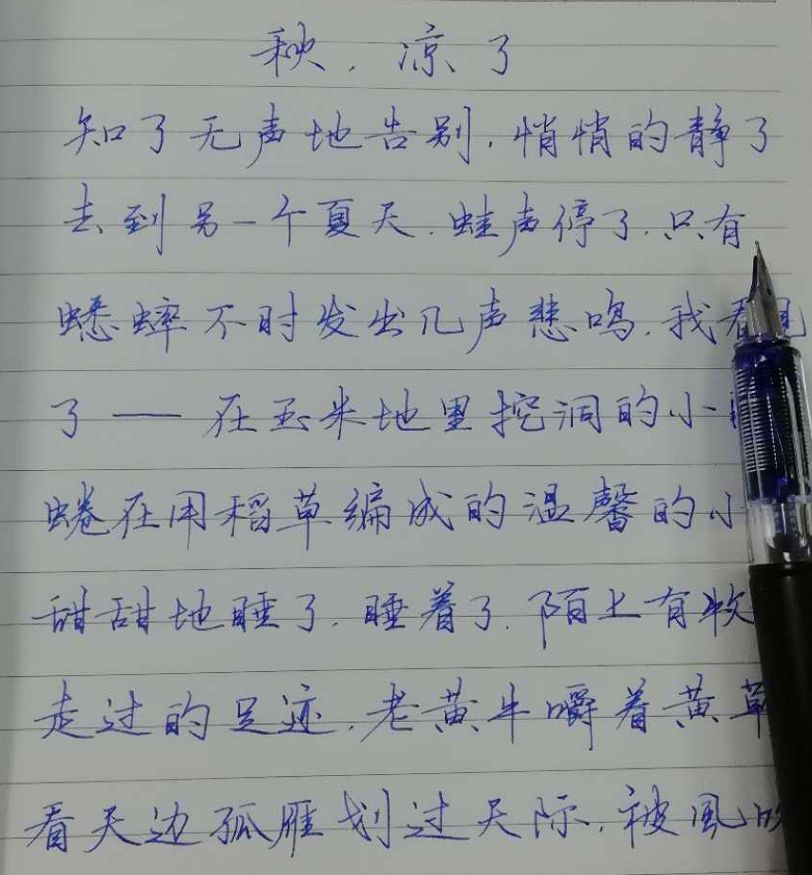 秋,凉了
知了无声地告别,悄悄的静了
去到另一个夏天.蛙声停了.只有
蟋蟀不时发出几声悲鸣.我看见
了——在玉米地里挖洞的小
蜷在用稻草编成的温馨的小
甜甜地睡了.睡着了.陌上有牧
走过的足迹.老黄牛嚼着黄草
看天边孤雁划过天际.被風吹